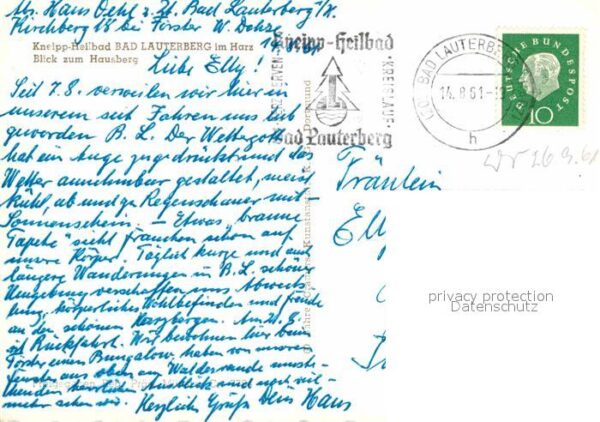 Abs. Hans Oehl z. Zt. Bad Lauterberg i/H.
Kirchberg 65 bei Förster W. Dohze
Kneipp-Heilbad BAD LAUTERBERG im Harz
Blick zum Hausberg
Liebe Elly!
Seit 7.8. verweilen wir hier in
unserem seit Jahren uns lieb
gewordenen B. L. Der Wettergott
hat ein Auge zugedrückt und das
Wetter annehmbar gestaltet, meist
kühl, ab und zu Regenschauer mit
Sonnenschein – Etwas braune
Tapete" sieht Frauchen schon auf
unsre Körper. Täglich kurze und auch
längere Wanderungen in B. L. schöner
Umgebung verschaffen uns Abwechs
lung, körperliches Wohlbefinden und Freude
an den schönen Harzbergen. Am
ist Rückfahrt. Wir bewohnen hier beim
Förster einen Bungalow, haben von unsren
Fenster aus oben am Waldesrande
herrlichen Ausblick und noch viel
mehr
Herzliche Grüße Dein Hans
Kneipp-Heilbad
Bad Lauterberg
BAD LAUTERBERG
14.8.61
h
DEUTSCHE BUNDESPOST
10
Fräulein
Elly
privacy protection
Datenschutz